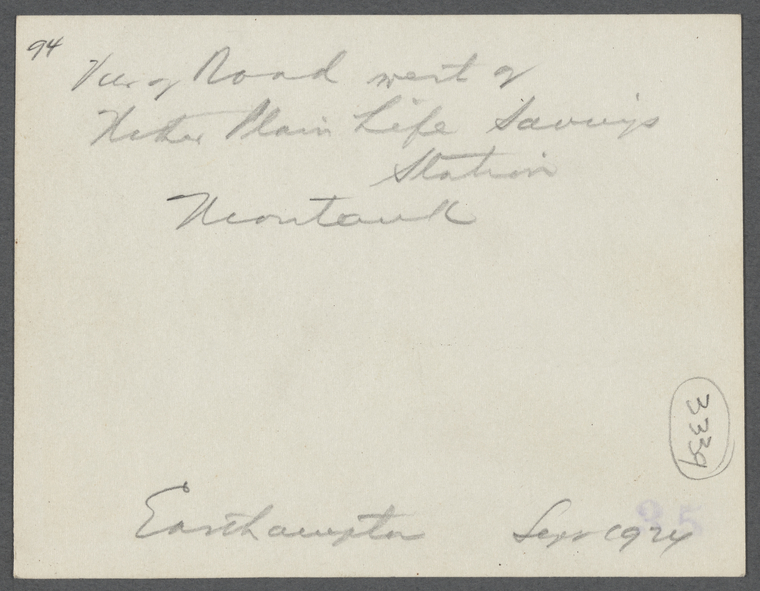 94
View of Road west of
Hither Plain Life Savings
Station
Montauk
3339
Easthampton Sept 1924
35